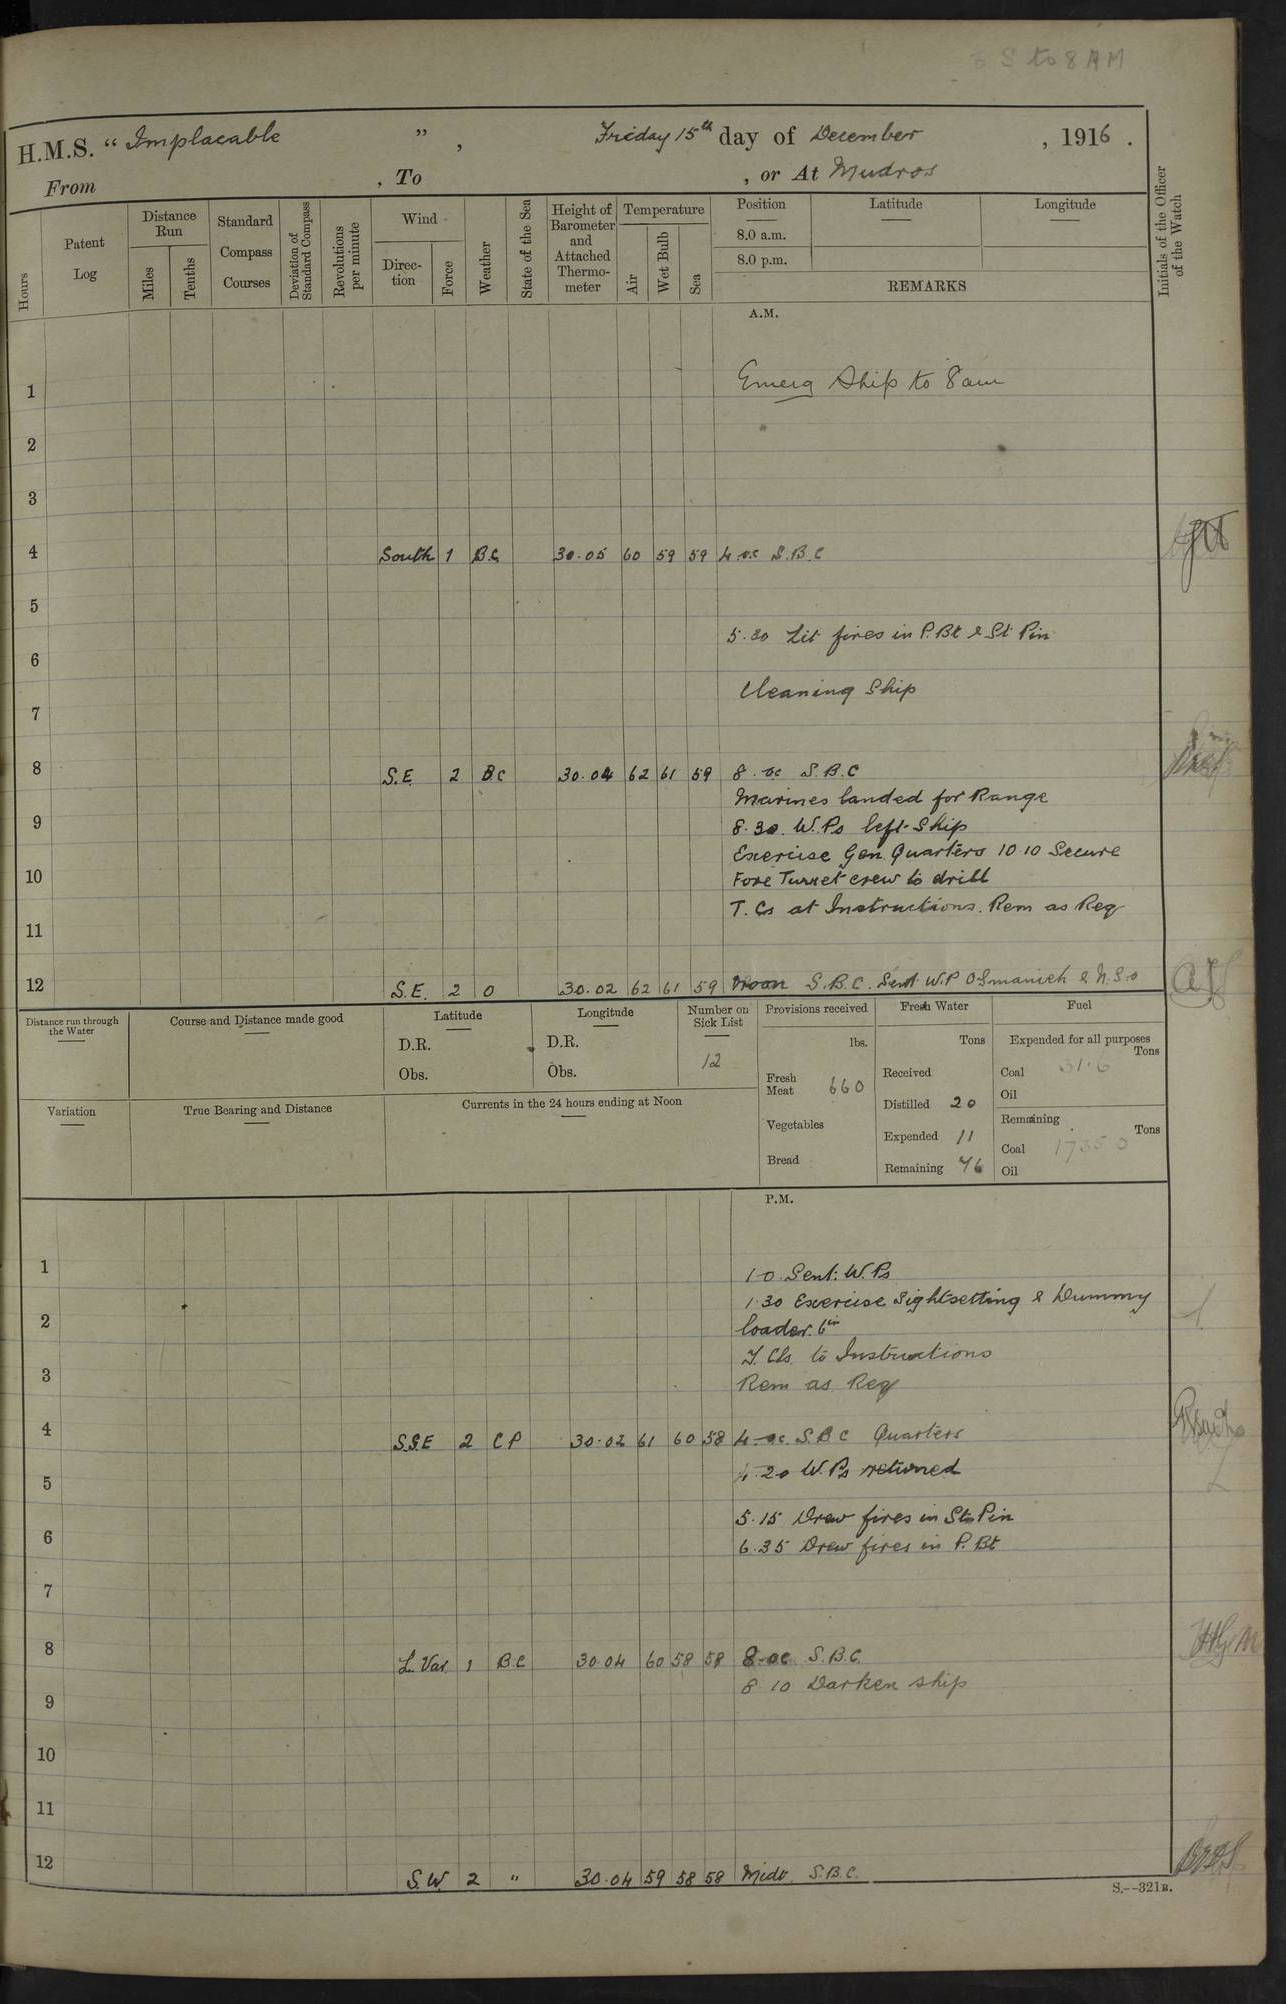 S to 8 AM
H.M.S. "Implacable", Friday 15th day of December, 1916.
From , To , or At Mudros
Hours
Patent Log
Distance Run
Miles
Tenths
Standard Compass Courses
Deviation of Standard Compass
Revolutions per minute
Wind
Direction
Force
Weather
State of the Sea
Height of Barometer and Attached Thermometer
Temperature
Air
Wet Bulb
Sea
Position
Latitude
Longitude
8.0 a.m.
8.0 p.m.
REMARKS
Initials of the Officer of the Watch
A.M.
1 Emerg Ship to 8 am
2
3
4 South 1 B.C. 30.05 60 59 59 4 oc S.B.C
5
5.30 Lit fires in P.Bt & St Pin
6
Cleaning Ship
7
8 S.E. 2 BC 30.04 62 61 59 8. oc S.B.C
Marines landed for Range
9 8.30. W.Ps left Ship
Exercise Gen Quarters 10 10 Secure
10 Fore Turret crew to drill
T. Cs at Instructions. Rem as Req
11
12 S.E. 2 O 30.02 62 61 59 Noon S.B.C. Sent W.P Osmanieh & N.S.O
Distance run through the Water
Course and Distance made good
Latitude
D.R.
Obs.
Longitude
D.R.
Obs.
Number on Sick List
12
Provisions received
lbs.
Fresh Meat 660
Vegetables
Bread
Fresh Water
Tons
Received
Distilled 20
Expended 11
Remaining 76
Fuel
Expended for all purposes
Tons
Coal 31.6
Oil
Remaining
Tons
Coal 1735 0
Oil
Variation
True Bearing and Distance
Currents in the 24 hours ending at Noon
P.M.
1 1-0. Sent: W.Ps
1.30 Exercise Sightsetting & Dummy
2 loader. 6in
T. Cls. to Instructions
3 Rem as Req
4 S.S.E 2 C P 30.02 61 60 58 4-oc S.B.C Quarters
4-20 W.Ps returned
5
5.15 Drew fires in St Pin
6 6.35 Drew fires in P. Bt
7
8 L. Var. 1 B.C 30.04 60 58 58 8-oc S.B.C.
8 10 Darken ship
9
10
11
12 S.W. 2 " 30.04 59 58 58 Midt. S.B.C.
S.--321B.